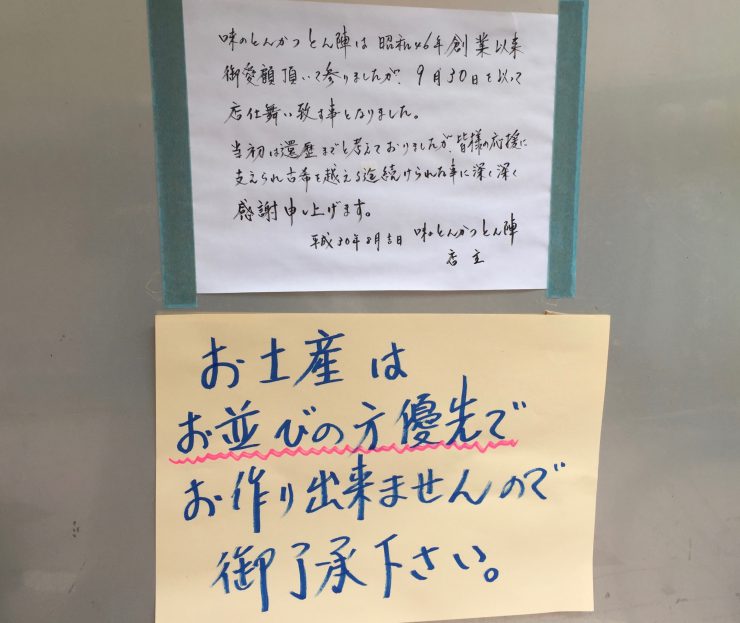 味のとんかつとん陣は昭和46年創業以来
御愛顧頂いて参りましたが、9月30日を以って
店仕舞い致す事となりました。
当初は還暦までと考えておりましたが、皆様の応援に
支えられ古希を越える迄続けられた事に深く深く
感謝申し上げます。
平成30年8月吉日 味のとんかつとん陣
店主
お土産は
お並びの方優先で
お作り出来ませんので
御了承下さい。